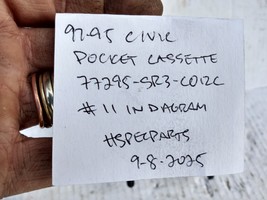 92-95 CIVIC
POCKET CASSETTE
77295-SR3-C01ZC
#11 IN DAGRAM
HSPECPARTS
9-8-2025